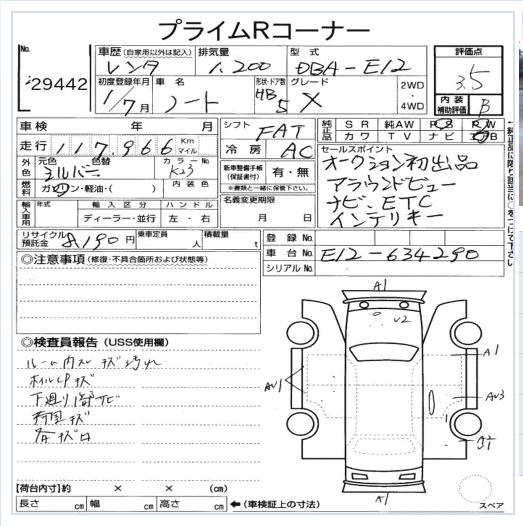 プライムRコーナー
No. 29442
車歴 (自家用以外は記入) レンタ
排気量 1.200
型式 DBA-E12
評価点 3.5
初度登録年月 1/7月
車名 ノート
形状・ドア数 HB 5
グレード X
2WD・4WD
内装補助評価 B
車検 年 月
走行 117,966 Km マイル
シフト FAT
冷房 AC
純正品 SR 純AW PS PW
カワ TV ナビ エアB
←純正品に限り該当に○をつけて下さい
外色 元色 シルバー 色替 カラーNo. K23
燃料 ガソリン・軽油・( ) 内装色
新車整備手帳(保証書付) 有・無
※書類と一緒に保管下さい。
セールスポイント
オークション初出品
アラウンドビュー
ナビ、ETC
インテリキー
輸入車用 年式 輸入区分 ハンドル
ディーラー・並行 左・右
名義変更期限 月 日
リサイクル預託金 8,190円
乗車定員 人
積載量 t
登録No.
車台No. E12-634290
シリアルNo.
◎注意事項 (修復・不具合箇所および状態等)
◎検査員報告 (USS使用欄)
ルーム内スレ キズ 汚れ
ホイルCPキズ
下廻り
キズ
A1
U2
A1
AU1
AU3
A1
【荷台内寸】約 × × (cm)
長さ cm 幅 cm 高さ cm ←(車検証上の寸法)
スペア